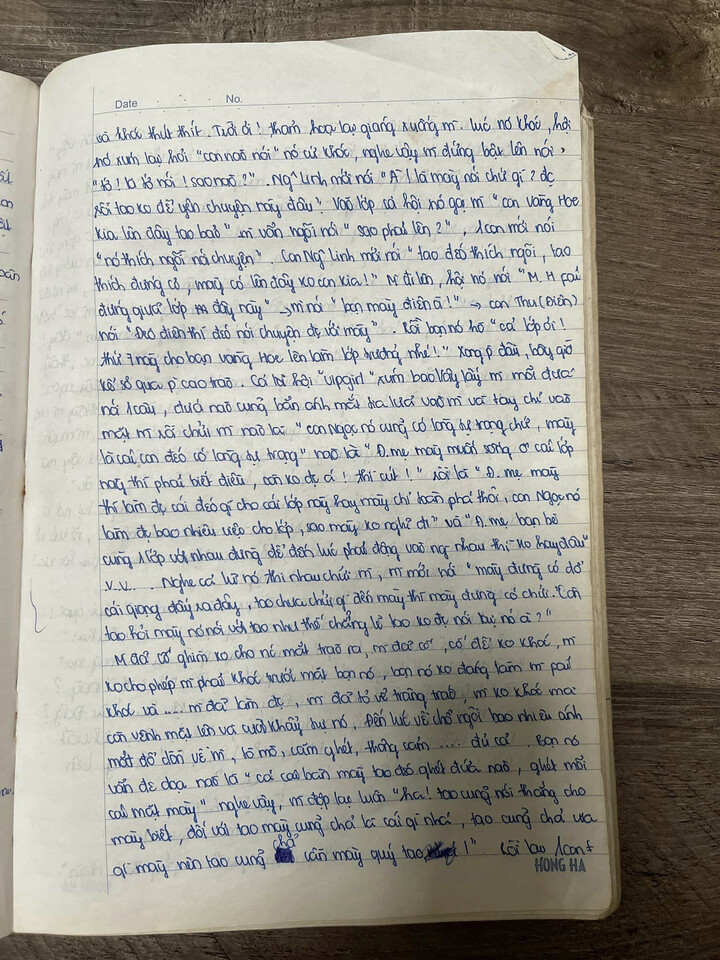 Date No.
và khóc thút thít. Trời ơi! thảm họa lại giáng xuống m. lúc nó khóc, hội
nó xúm lại hỏi "con nào nói" nó cứ khóc, nghe vậy m đứng bật lên nói,
"tớ! là tớ nói! sao nào?". Ngô Linh mới nói "À! là mày nói chứ gì? đc
rồi tao ko để yên chuyện này đâu". Vào lớp cả hội nó gọi m "con vàng Hoe
kia lên đây tao bảo" m vẫn ngồi nói "sao phải lên?", 1 con mới nói
"nó thích ngồi nói chuyện". Con Ngô Linh mới nói "tao đéo thích ngồi, tao
thích đứng cơ, mày có lên đây ko con kia!" M đi lên, hội nó nói "M. H fải
đứng giữa lớp đây này" → m nói "bọn mày điên à!" → con Thu (Điên)
nói "Đéo điên thì đéo nói chuyện đc với mày". Rồi bọn nó hô "cả lớp ơi!
thứ 7 này cho bạn vàng Hoe lên làm lớp trưởng nhé!" Xong p đầu, bây giờ
kể sẽ qua p cao trào. Cả lũ hội "vipgirl" xúm bao lấy lấy m mỗi đứa
nói 1 câu, đứa nào cũng bắn ánh mắt tia lửa vào m và tay chỉ vào
mặt m rồi chửi m nào là "con Ngọc nó cũng có lòng tự trọng chứ, mày
là cái con đéo có lòng tự trọng" nào là "Đ. mẹ mày muốn sống ở cái lớp
này thì phải biết điều, còn ko đc á! thì cút!" rồi là "Đ. mẹ mày
thì làm đc cái đéo gì cho cái lớp này hay mày chỉ toàn phá thôi, con Ngọc nó
làm đc bao nhiêu việc cho lớp, sao mày ko nghĩ đi" và "Đ. mẹ bạn bè
cùng 1 lớp với nhau đừng để đến lúc phải động vào ng nhau thì ko hay đâu"
v.v.... Nghe cả lũ nó thi nhau chửi m, m mới nói "mày đừng có dở
cái giọng đấy ra đây, tao chưa chửi gì đến mày thì mày đừng có chửi. Còn
tao hỏi mày nó nói với tao như thế chẳng lẽ tao ko đc nói lại nó à?"
M đã cố ghìm ko cho nc mắt trào ra, m đã cố, cố để ko khóc, m
ko cho phép m phải khóc trước mặt bọn nó, bọn nó ko đáng làm m fải
khóc và .... m đã làm đc, m đã tỏ vẻ trâng tráo, m ko khóc mà
còn vênh mặt lên và cười khẩy bọn nó, Đến lúc về chỗ ngồi bao nhiêu ánh
mắt đổ dồn về m, tò mò, căm ghét, thông cảm .... đủ cả. Bọn nó
vẫn đe dọa nào là "cả cái bàn mày tao đéo ghét đứa nào, ghét mỗi
cái mặt mày" nghe vậy, m đốp lại luôn "ha! tao cũng nói thẳng cho
mày biết, đối với tao mày cũng chả là cái gì nhá, tao cũng chả ưa
gì mày nên tao cũng chả cần mày quý tao!" Rồi lại 1 con
HONG HA